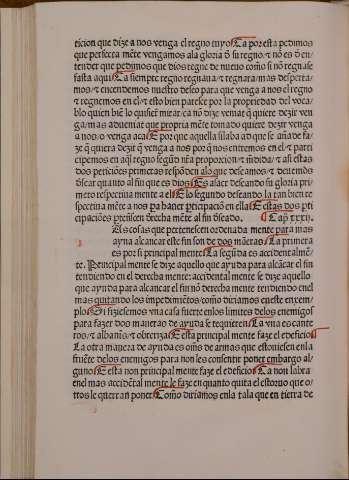 ticion que dize a nos venga el regno tuyo Ca por esta pedimos
que perfecta mẽte vengamos ala gloria đ su regno ⁊ nõ es đ en
tender que pedimos que dios regne de nueuo como si nõ regnase
fasta aqui Ca siempre regno regnaua ⁊ regnara mas desperta
mos ⁊ encendemos nuestro deseo para que venga a nos el regno
⁊ regnemos en el ⁊ esto bien paresce por la propriedad del voca
blo quien biẽ lo quisier mirar ca nõ dize venias q̃ quiere dezir ven
ga mas adueniat que propria mẽte tornado quiere dezir venga
a nos o venga aca E por que aquella silaba ad que se añade fa
ze q̃ quiera dezir q̃ venga a nos por q̃ nos entremos en el ⁊ parti
cipemos en aq̃l regno segũd nr̃a proporcion ⁊ mẽdida ⁊ asi estas
dos peticiões primeras respõden alo que deseamos ⁊ deuemos
desear quanto al fin que es dios Es asaber deseando su gloria pri
mero respectiua mente a el E lo segundo deseando la tan bien re
spectiua mẽte a nos pa hauer pticipació en ella E estas dos pti
cipaciões presisen derecha mẽte al fin deseado. Cap. xxxii.
Las cosas que pertenescen ordenada mente para mas
ayna alcancar este fin son de dos maneras La primera
es por si principal mente La segũda es accidental mẽ
te. Principal mente se dize aquello que ayuda para alcãcar el fin
tendiendo en el derecha mente: accidental mente se dize aquello
que ayuda para alcancar el fin nõ derecha mente tendiendo en el
mas quitando los impedimẽtos como diriamos en este enxem
plo Si fiziesemos vna casa fuerte en los limites delos enemigos
para fazer dos maneras de ayuda se requieren La vna es cante
ros ⁊ albañis ⁊ obreriza E esta principal mente faze el edeficio
La otra manera de ayuda es omẽs de armas que estouiesen en la
fruẽte delos enemigos para non les consentir poner embargo al
guno E esta non principal mente faze el edeficio Ca non labra
en el mas accidẽtal mente le faze en quanto quita el estoruo que o
tros le querran poner Como diriamos en la tala que en tierra de